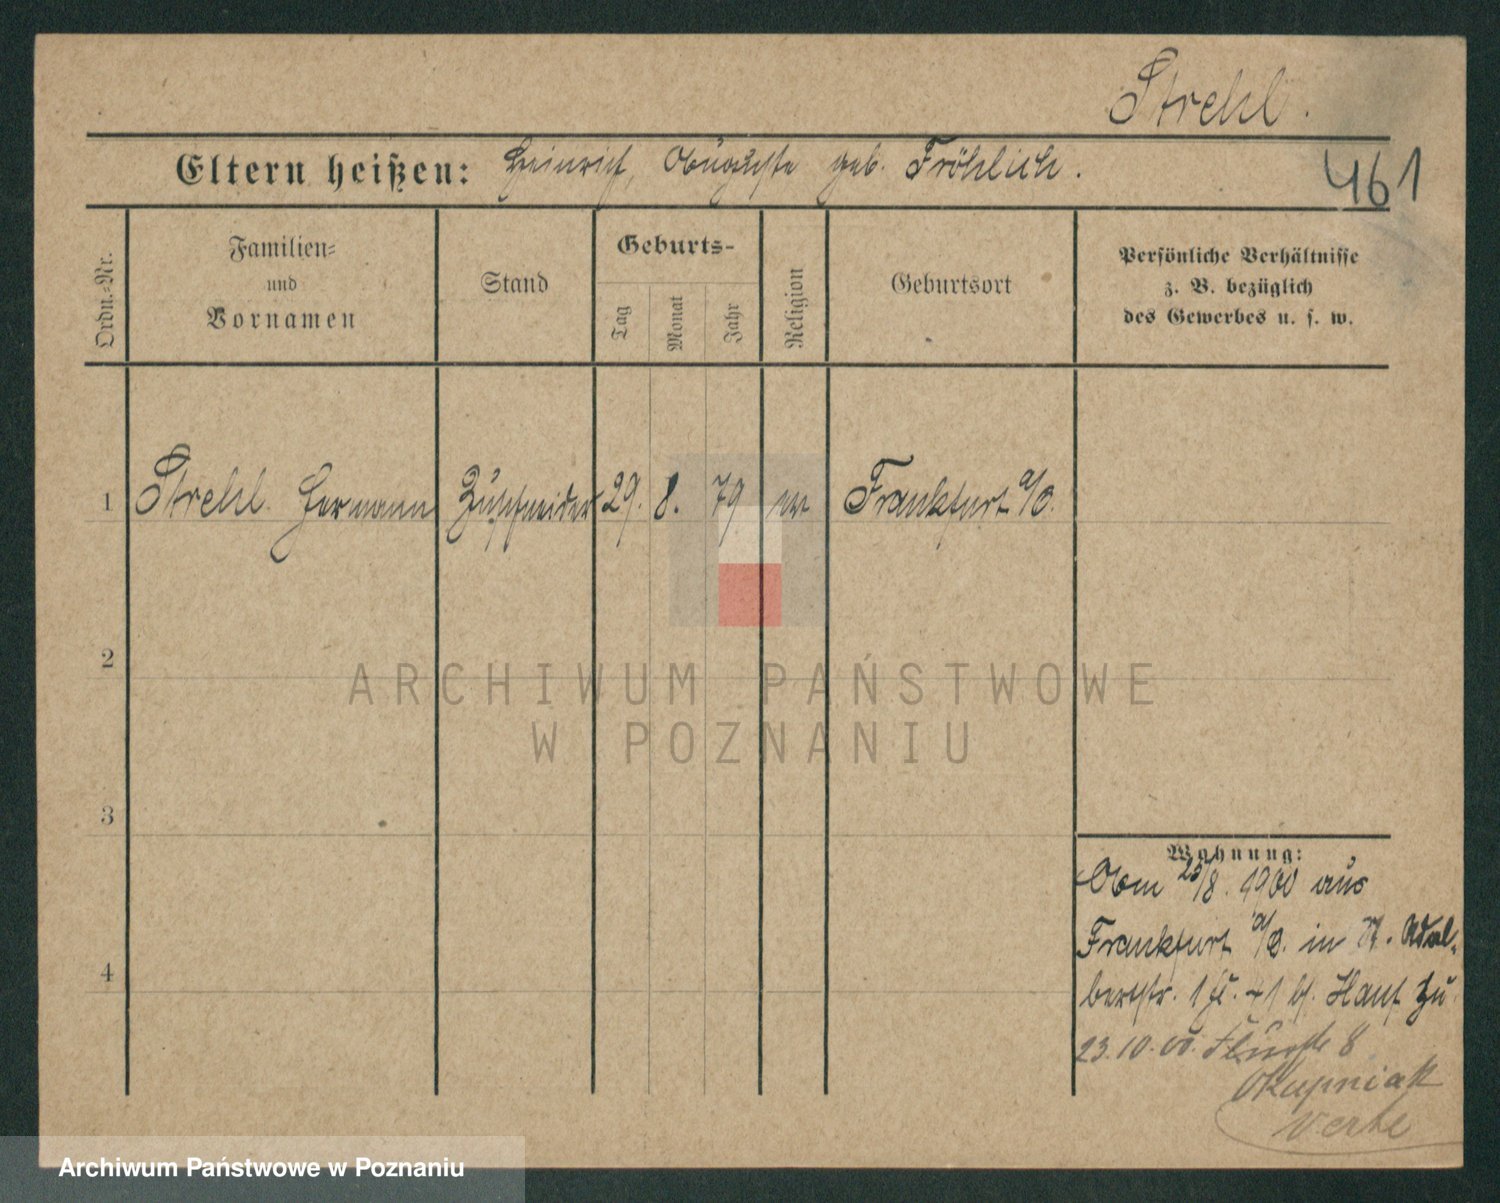 Strehl.
Eltern heißen: Heinrich, Auguste geb. Fröhlich.
461
Ordn.-Nr.
Familien-
und
Vornamen
Stand
Geburts-
Tag
Monat
Jahr
Religion
Geburtsort
Persönliche Verhältnisse
z. B. bezüglich
des Gewerbes u. s. w.
1 Strehl Hermann Zuschneider 29. 8. 79 ev Frankfurt a/O.
2
ARCHIWUM PAŃSTWOWE
W POZNANIU
3
4
Wohnung:
Am 25/8. 1900 aus
Frankfurt a/O. in St. Adal-
bertstr. 1 b. Hauf zu
23.10.00. 8
Okupniak
Archiwum Państwowe w Poznaniu